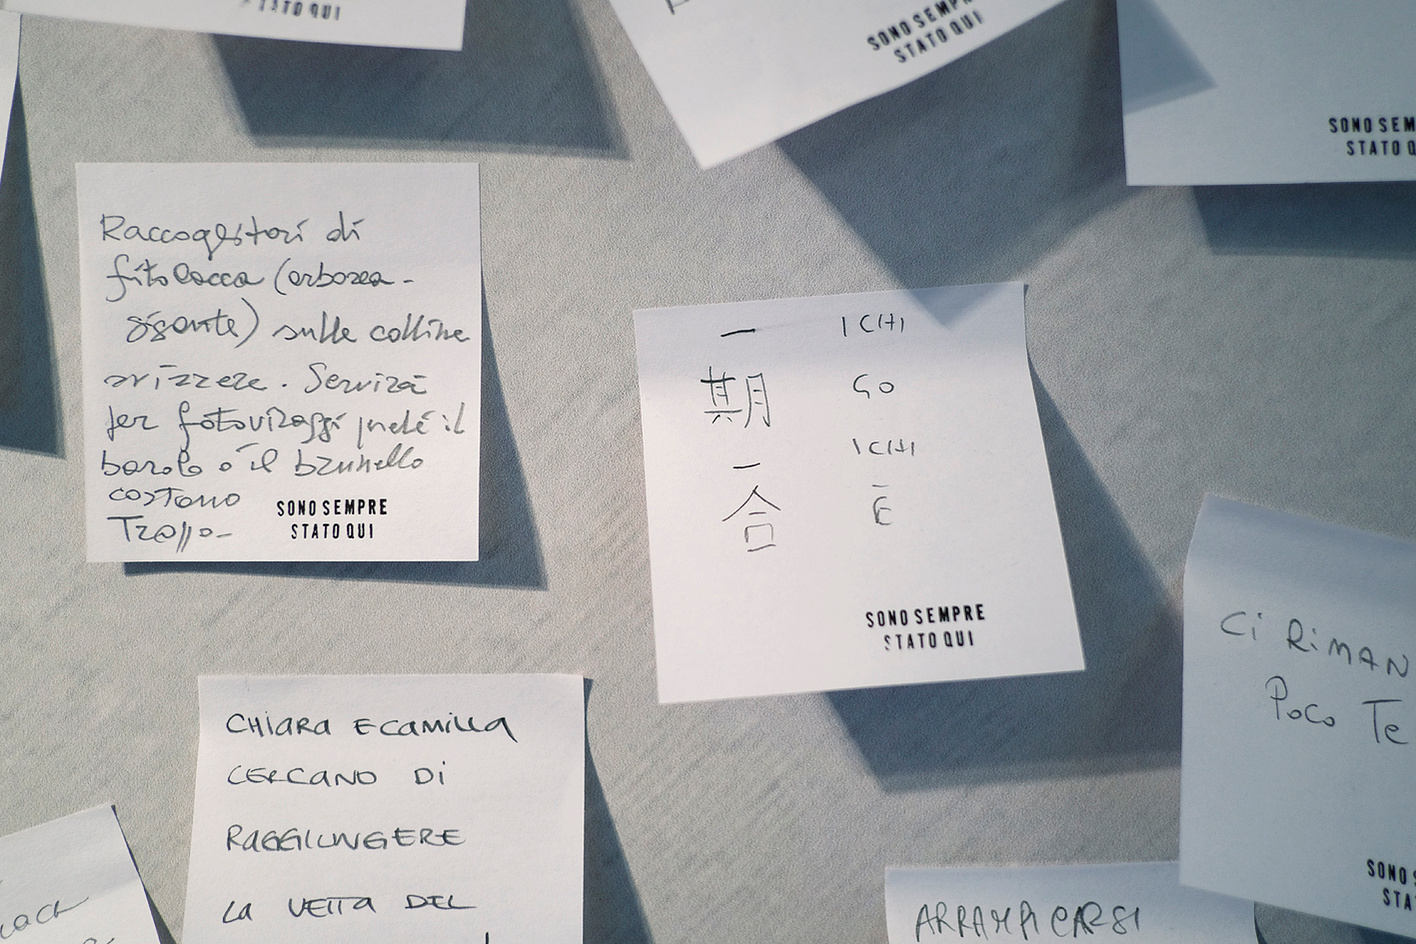 STATO QUI
SONO SEMPRE
STATO QUI
SONO SEM
STATO Q
Raccoglitori di
fitolacca (erborea-
gigante) sulle colline
svizzere. Servirà
per fotoviraggi perché il
barolo o il brunello
costano
Troppo-
SONO SEMPRE
STATO QUI
一 ICHI
期 GO
一 ICHI
会 Ē
SONO SEMPRE
STATO QUI
CHIARA E CAMILLA
CERCANO DI
RAGGIUNGERE
LA VETTA DEL
Ci RiMAN
Poco Te
SONO S
STA
ARRAMPICARSI